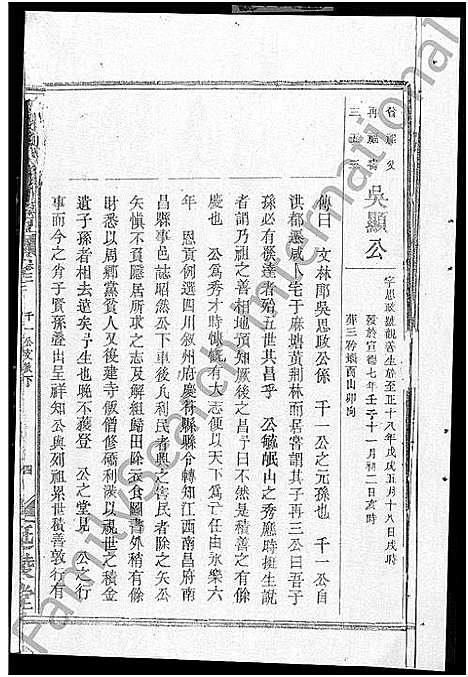 再
三
吳顯公
字思政號觀善生於至正十八年戊戌五月十八日戌時
歿於宣德七年壬子十一月初二日亥時
葬三
酉山卯向
傳曰 文林郎吳思政公係 千一公之元孫也 千一公自
洪都遷咸卜宅于麻塘黃荆林而居嘗謂其子再三公曰吾子
孫必有僕達者殆五世其昌乎 公毓岷山之秀應時挺生說
者謂乃祖之善相地預知厥後之昌予曰是積善之有餘
慶也 公為秀才時慷慨有大志便以天下為己任由永樂六
年 恩貢例選四川叙州府慶符縣縣分轉知江西南昌府南
昌縣事邑誌昭然公下車後凡利民者興之害民者除之矢公
矢慎不負隱居所求之志及解組歸田除衣食圖書外稍有餘
財悉以周鄉黨貧人又後建寺飯僧修橋利涉以視世之積金
遺子孫者相去遠矣予生也晚不獲登 公之堂見 公之行
事而今之肯子賢孫疊出呈祥知公與列祖累世積善敦行有
千一公支派下
四
堂
FamilySearch International